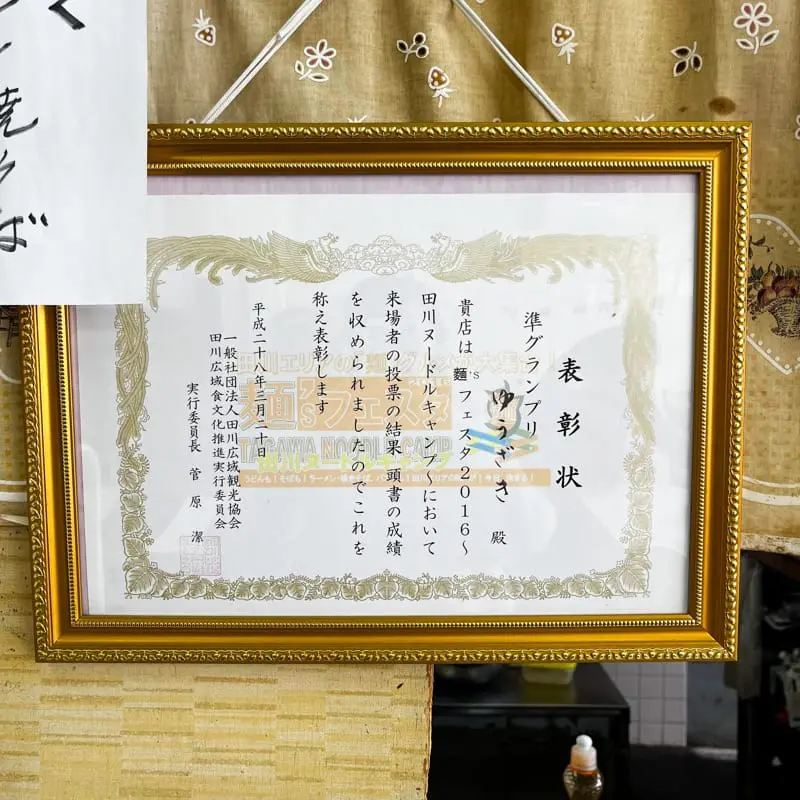 焼そば
表彰状
準グランプリ
ゆうざき 殿
貴店は麺'sフェスタ2016～
田川ヌードルキャンプ～において
来場者の投票の結果、頭書の成績
を収められましたのでこれを
称え表彰します
平成二十八年三月二十日
一般社団法人田川広域観光協会
田川広域食文化推進実行委員会
実行委員長 菅原 潔
麺'sフェスタ
TAGAWA NOODLE CAMP
田川ヌードルキャンプ